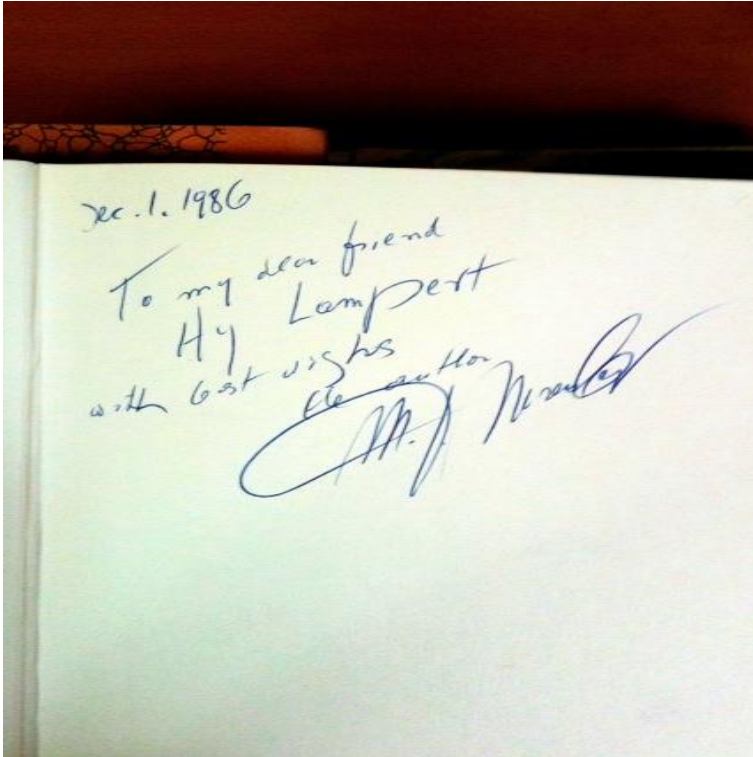 Dec. 1. 1986
To my dear friend
Hy Lampert
with best wishes
the author
M. J.